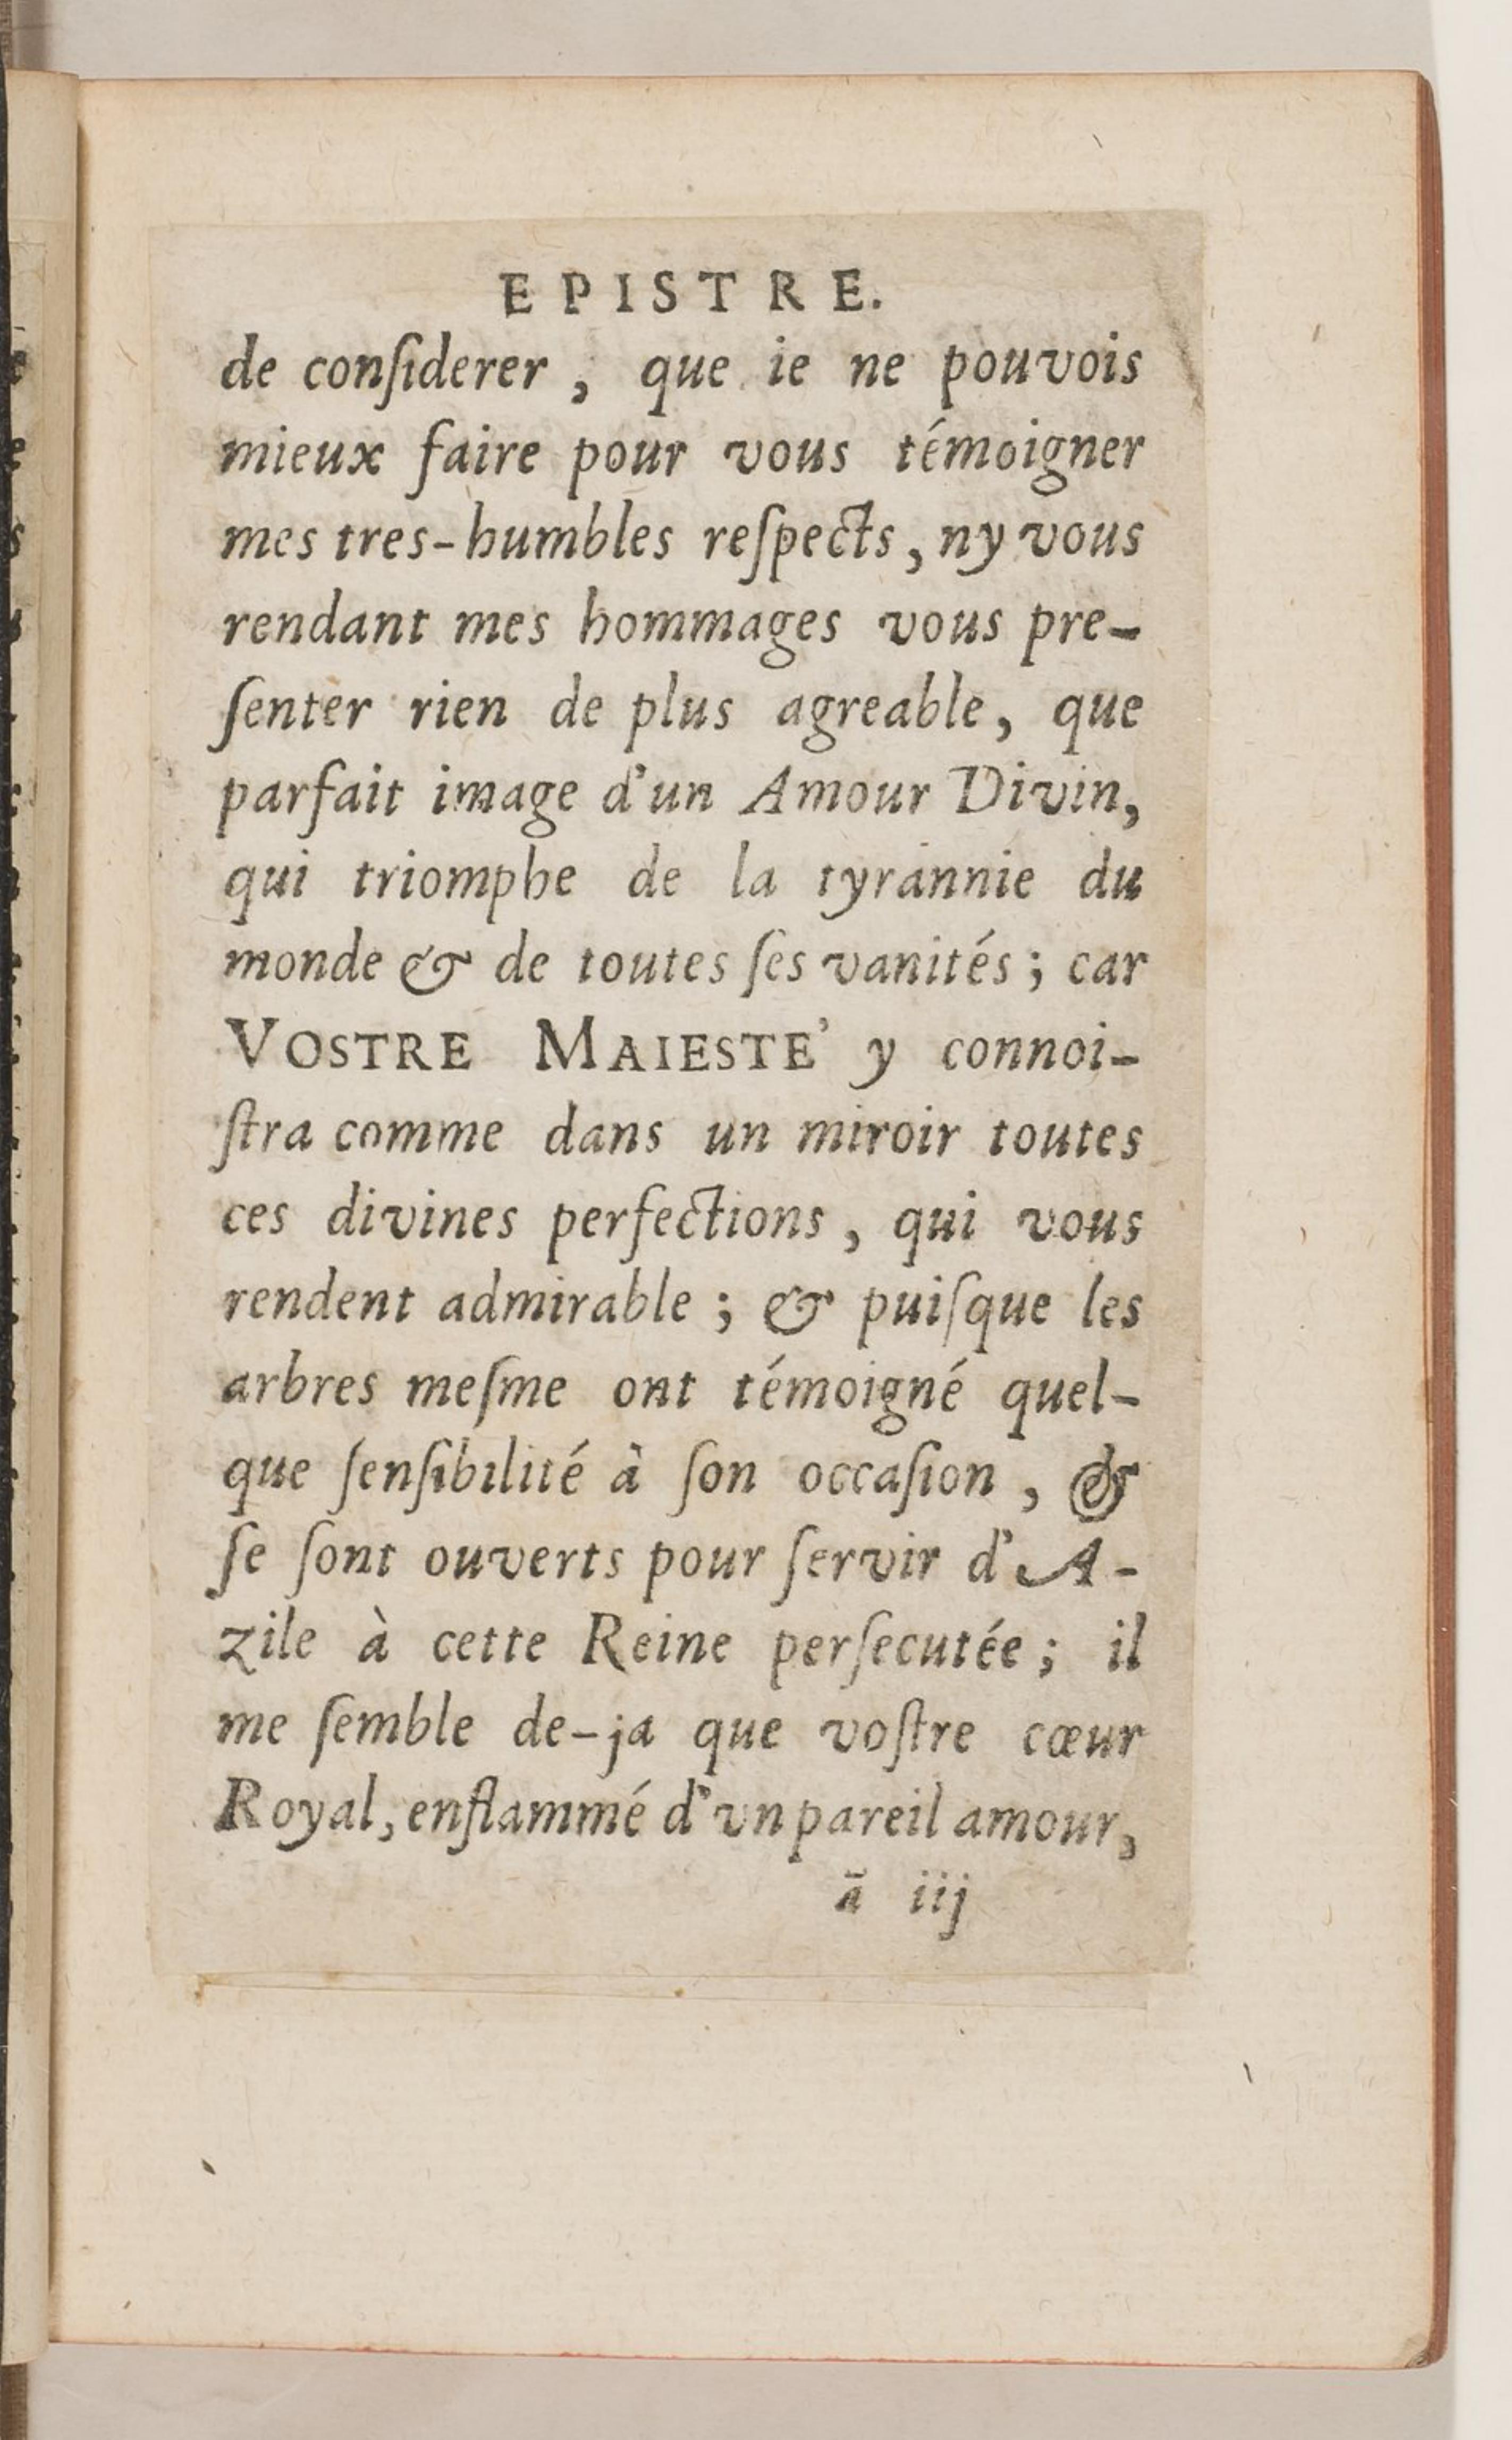 EPISTRE.
de conſiderer, que ie ne pouvois
mieux faire pour vous témoigner
mes tres-humbles reſpects, ny vous
rendant mes hommages vous pre-
ſenter rien de plus agreable, que
parfait image d'un Amour Divin,
qui triomphe de la tyrannie du
monde & de toutes ſes vanités; car
VOSTRE MAIESTE' y connoi-
ſtra comme dans un miroir toutes
ces divines perfections, qui vous
rendent admirable; & puiſque les
arbres meſme ont témoigné quel-
que ſenſibilité à ſon occaſion, &
ſe ſont ouverts pour ſervir d'A-
zile à cette Reine perſecutée; il
me ſemble de-ja que voſtre cœur
Royal, enflammé d'vn pareil amour,
ā iij